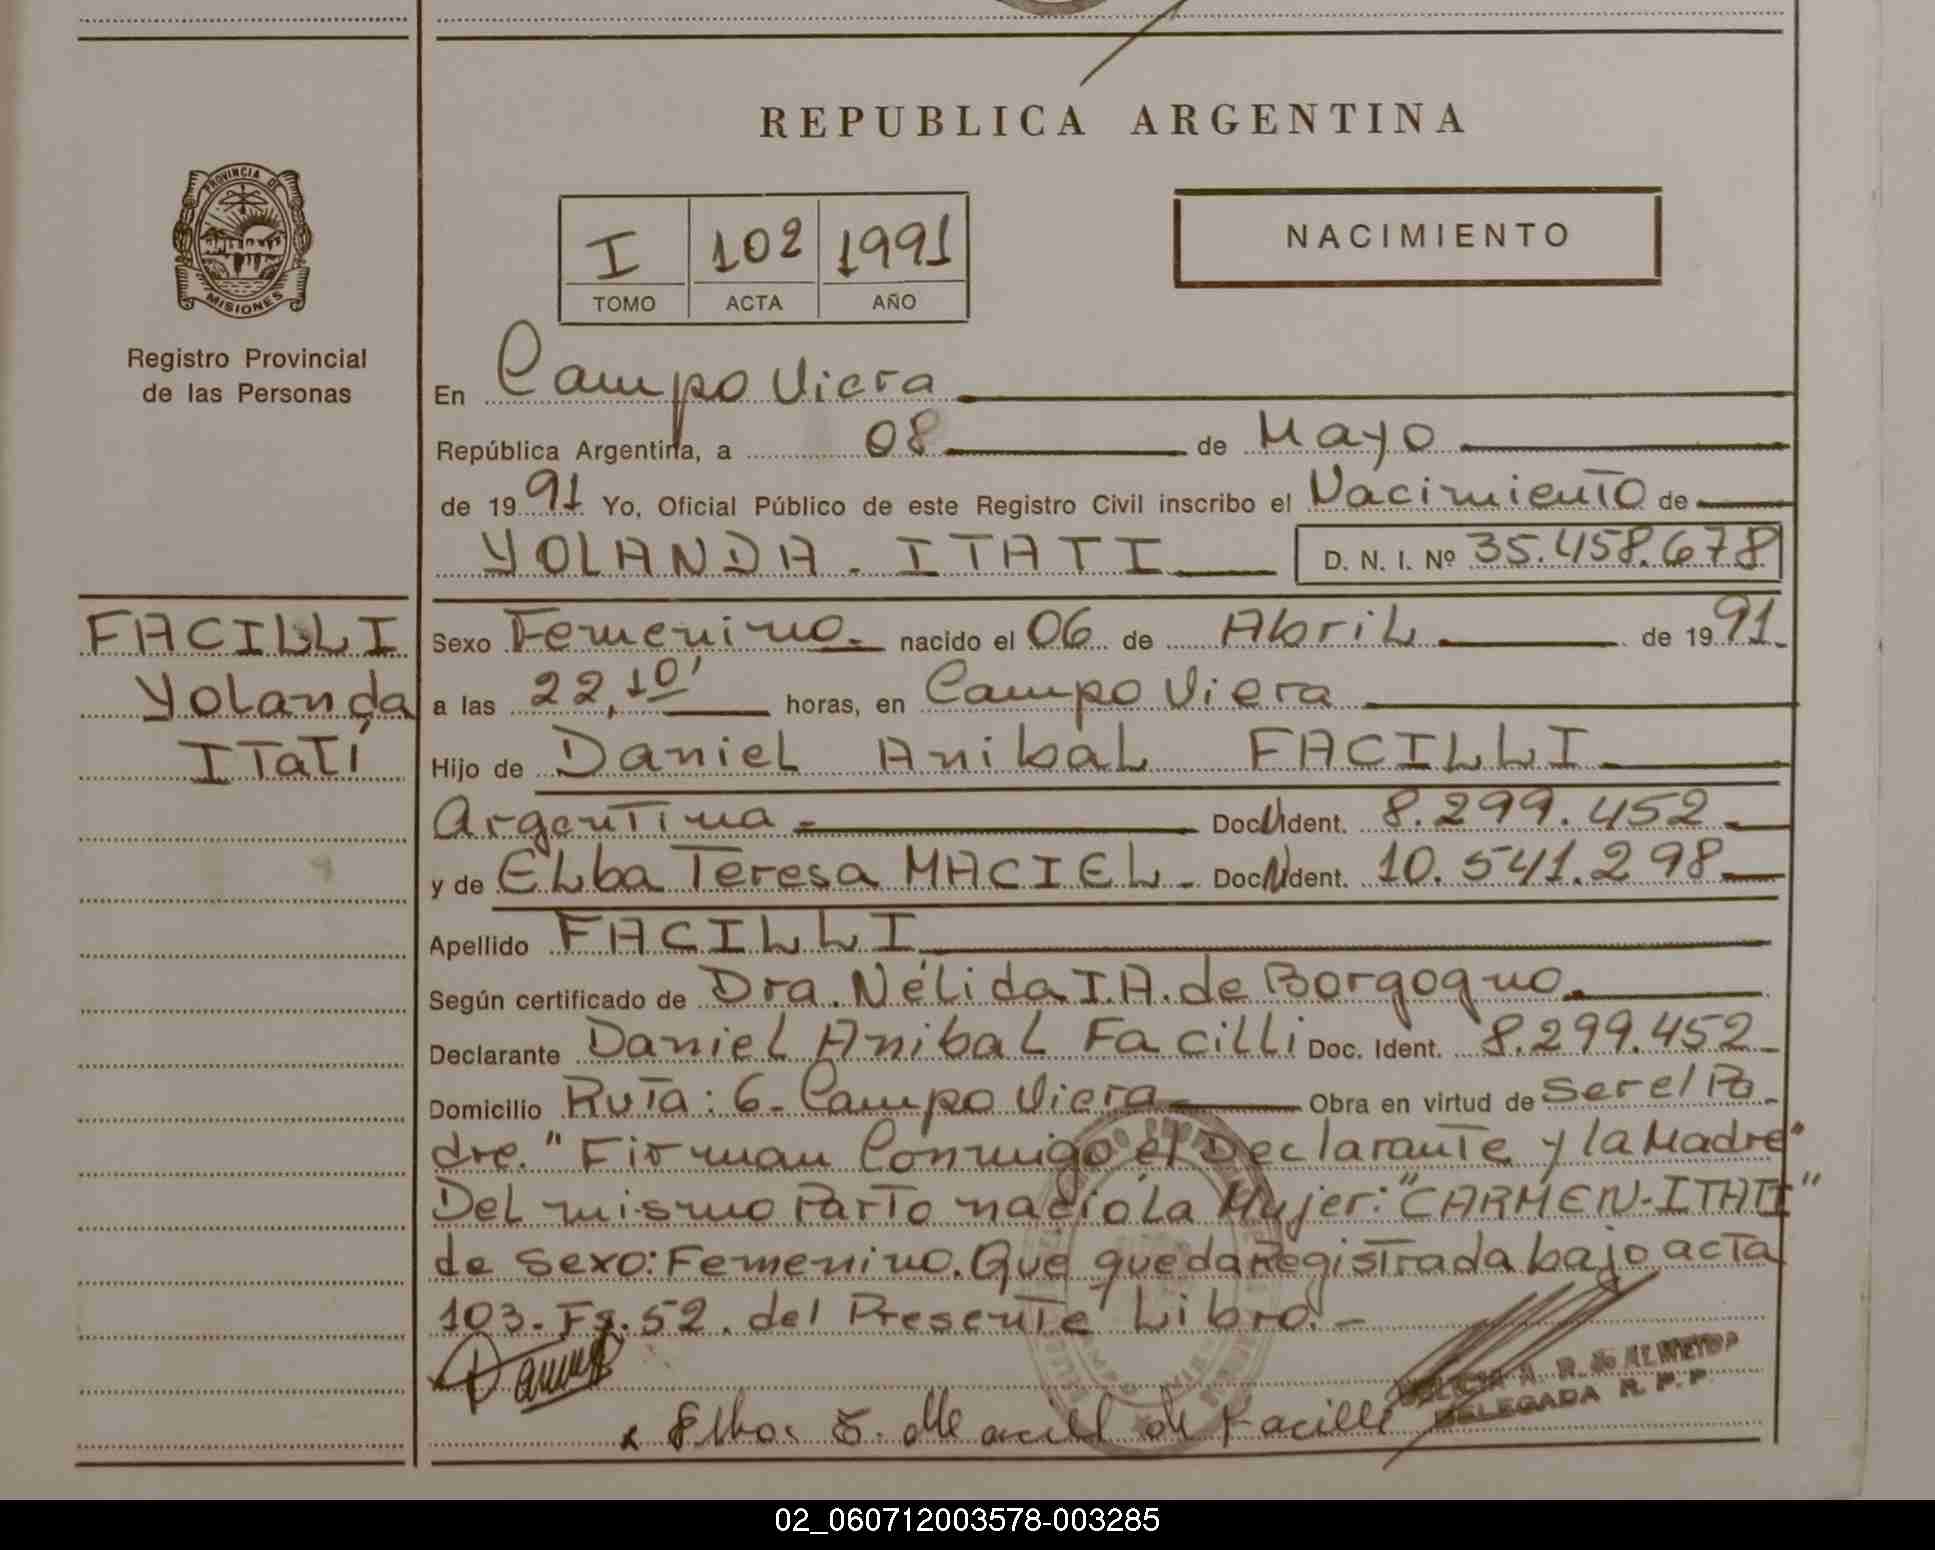 REPUBLICA ARGENTINA
PROVINCIA DE
MISIONES
Registro Provincial
de las Personas
I 102 1991
TOMO ACTA AÑO
NACIMIENTO
En Campo Viera
República Argentina, a 08 de Mayo
de 1991 Yo, Oficial Público de este Registro Civil inscribo el Nacimiento de
YOLANDA - ITATI D. N. I. Nº 35.458.678
FACILLI
Yolanda
ITaTí
Sexo Femenino.- nacido el 06 de Abril de 1991.-
a las 22,10' horas, en Campo Viera
Hijo de Daniel Anibal FACILLI
Argentina Doc. N Ident. 8.299.452
y de Elba Teresa MACIEL - Doc. N Ident. 10.541.298
Apellido FACILLI
Según certificado de Dra. Nélida I.A. de Borgogno.
Declarante Daniel Anibal Facilli Doc. Ident. 8.299.452
Domicilio Ruta: 6 - Campo Viera Obra en virtud de ser el Pa-
dre. "Firman Conmigo el Declarante y la Madre"
Del mismo Parto nació La Mujer: "CARMEN-ITATI"
de Sexo: Femenino. Que queda Registrada bajo acta
103 - Fs. 52. del Presente Libro. -
x Elba T. Maciel de Facilli
R. de ALMEYDA
DELEGADA R. P. P.
02_060712003578-003285